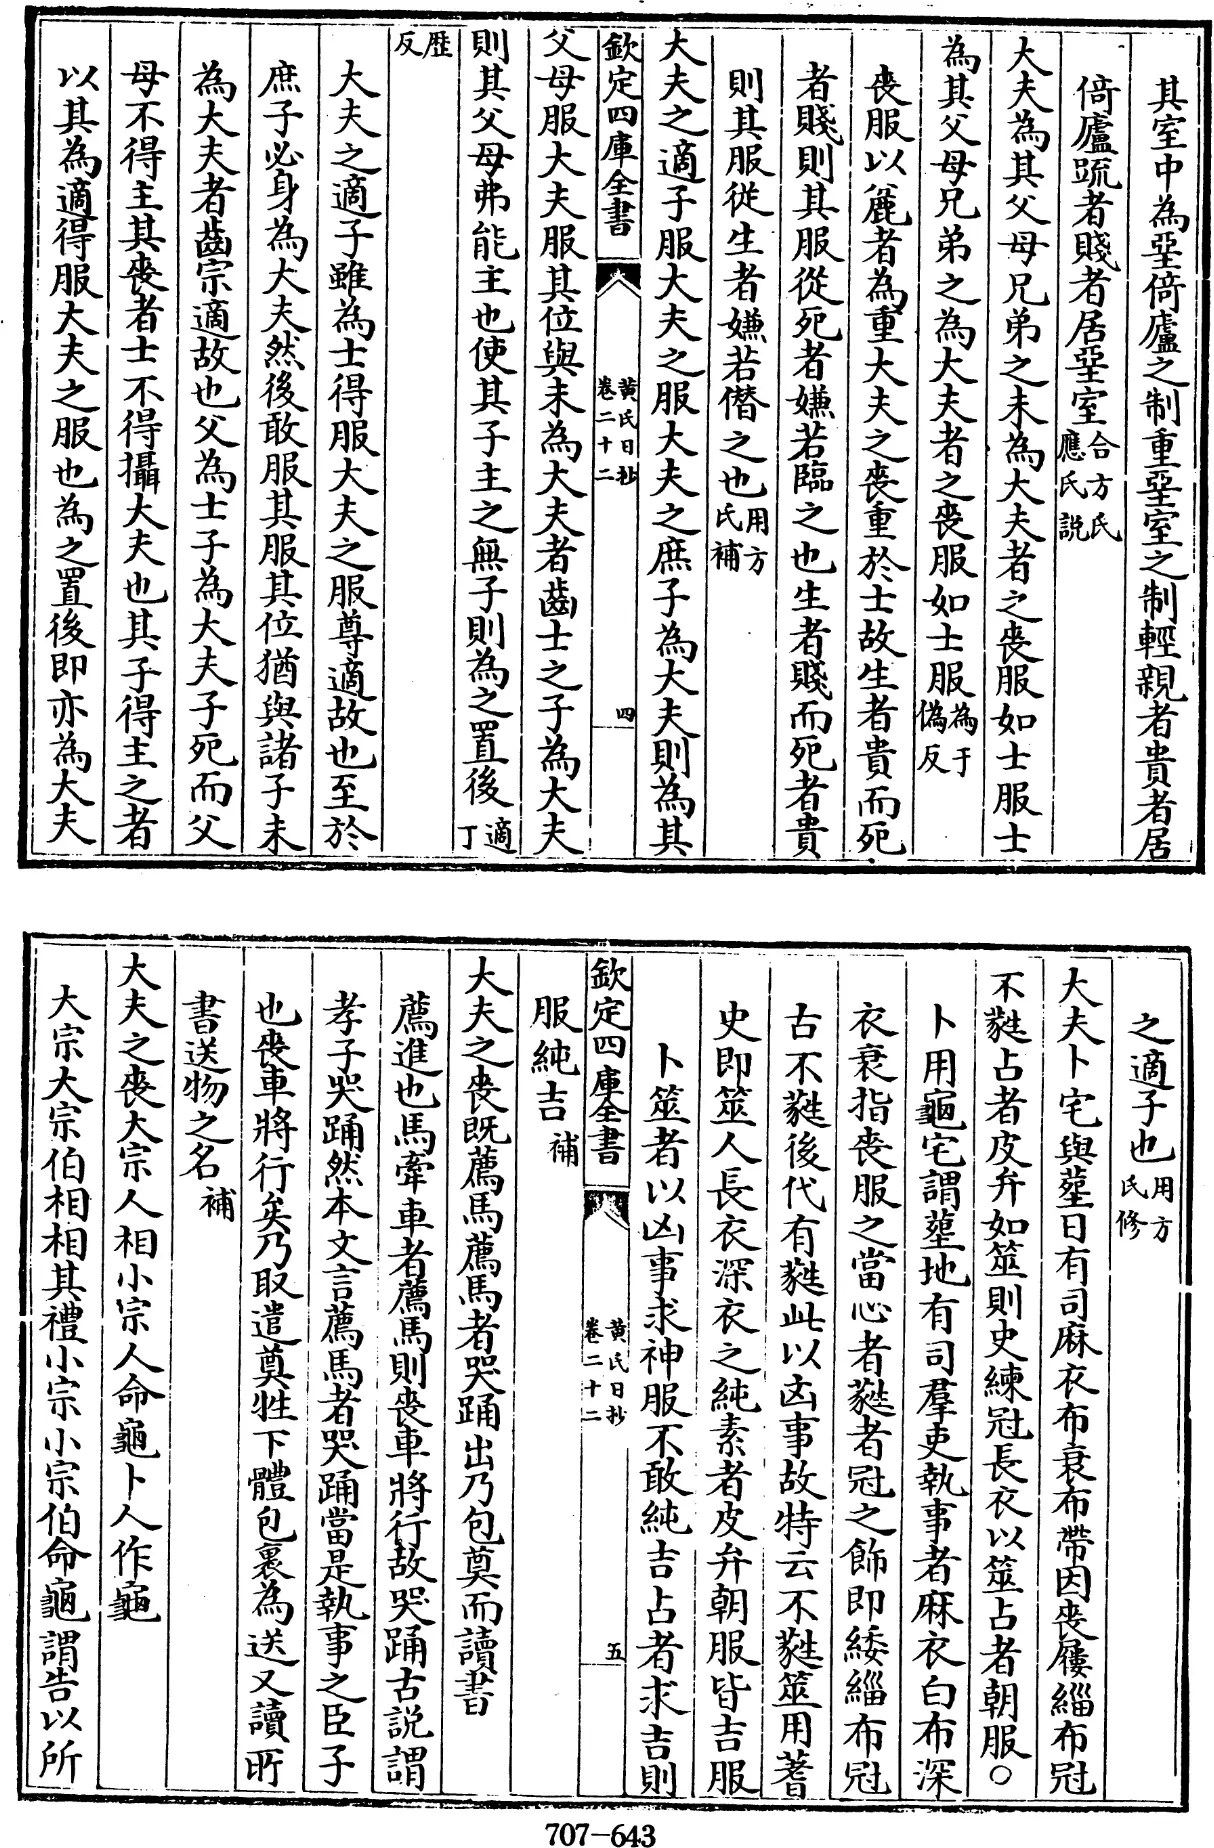 其室中為堊倚廬之制重堊室之制輕親者貴者居
倚廬䟽者賤者居堊室合方氏應氏説
大夫為其父母兄弟之未為大夫者之喪服如士服士
為其父母兄弟之為大夫者之喪服如士服為于偽反
喪服以麄者為重大夫之喪重於士故生者貴而死
者賤則其服從死者嫌若臨之也生者賤而死者貴
則其服從生者嫌若僭之也用方氏補
大夫之適子服大夫之服大夫之庶子為大夫則為其
欽定四庫全書
黄氏日抄
卷二十二
四
父母服大夫服其位與未為大夫者齒士之子為大夫
則其父母弗能主也使其子主之無子則為之置後適丁
歴反
大夫之適子雖為士得服大夫之服尊適故也至於
庶子必身為大夫然後敢服其服其位猶與諸子未
為大夫者齒宗適故也父為士子為大夫子死而父
母不得主其喪者士不得攝大夫也其子得主之者
以其為適得服大夫之服也為之置後即亦為大夫
之適子也用方氏修
大夫卜宅與葬日有司麻衣布衰布帶因喪屨緇布冠
不蕤占者皮弁如筮則史練冠長衣以筮占者朝服○
卜用龜宅謂葬地有司羣吏執事者麻衣白布深
衣衰指喪服之當心者蕤者冠之飾即緌緇布冠
古不蕤後代有蕤此以凶事故特云不蕤筮用蓍
史即筮人長衣深衣之純素者皮弁朝服皆吉服
卜筮者以凶事求神服不敢純吉占者求吉則
欽定四庫全書
黄氏日抄
卷二十二
五
服純吉補
大夫之喪既薦馬薦馬者哭踊出乃包奠而讀書
薦進也馬牽車者薦馬則喪車將行故哭踊古説謂
孝子哭踊然本文言薦馬者哭踊當是執事之臣子
也喪車將行矣乃取遣奠牲下體包裹為送又讀所
書送物之名補
大夫之喪大宗人相小宗人命龜卜人作龜
大宗大宗伯相相其禮小宗小宗伯命龜謂告以所
707-643